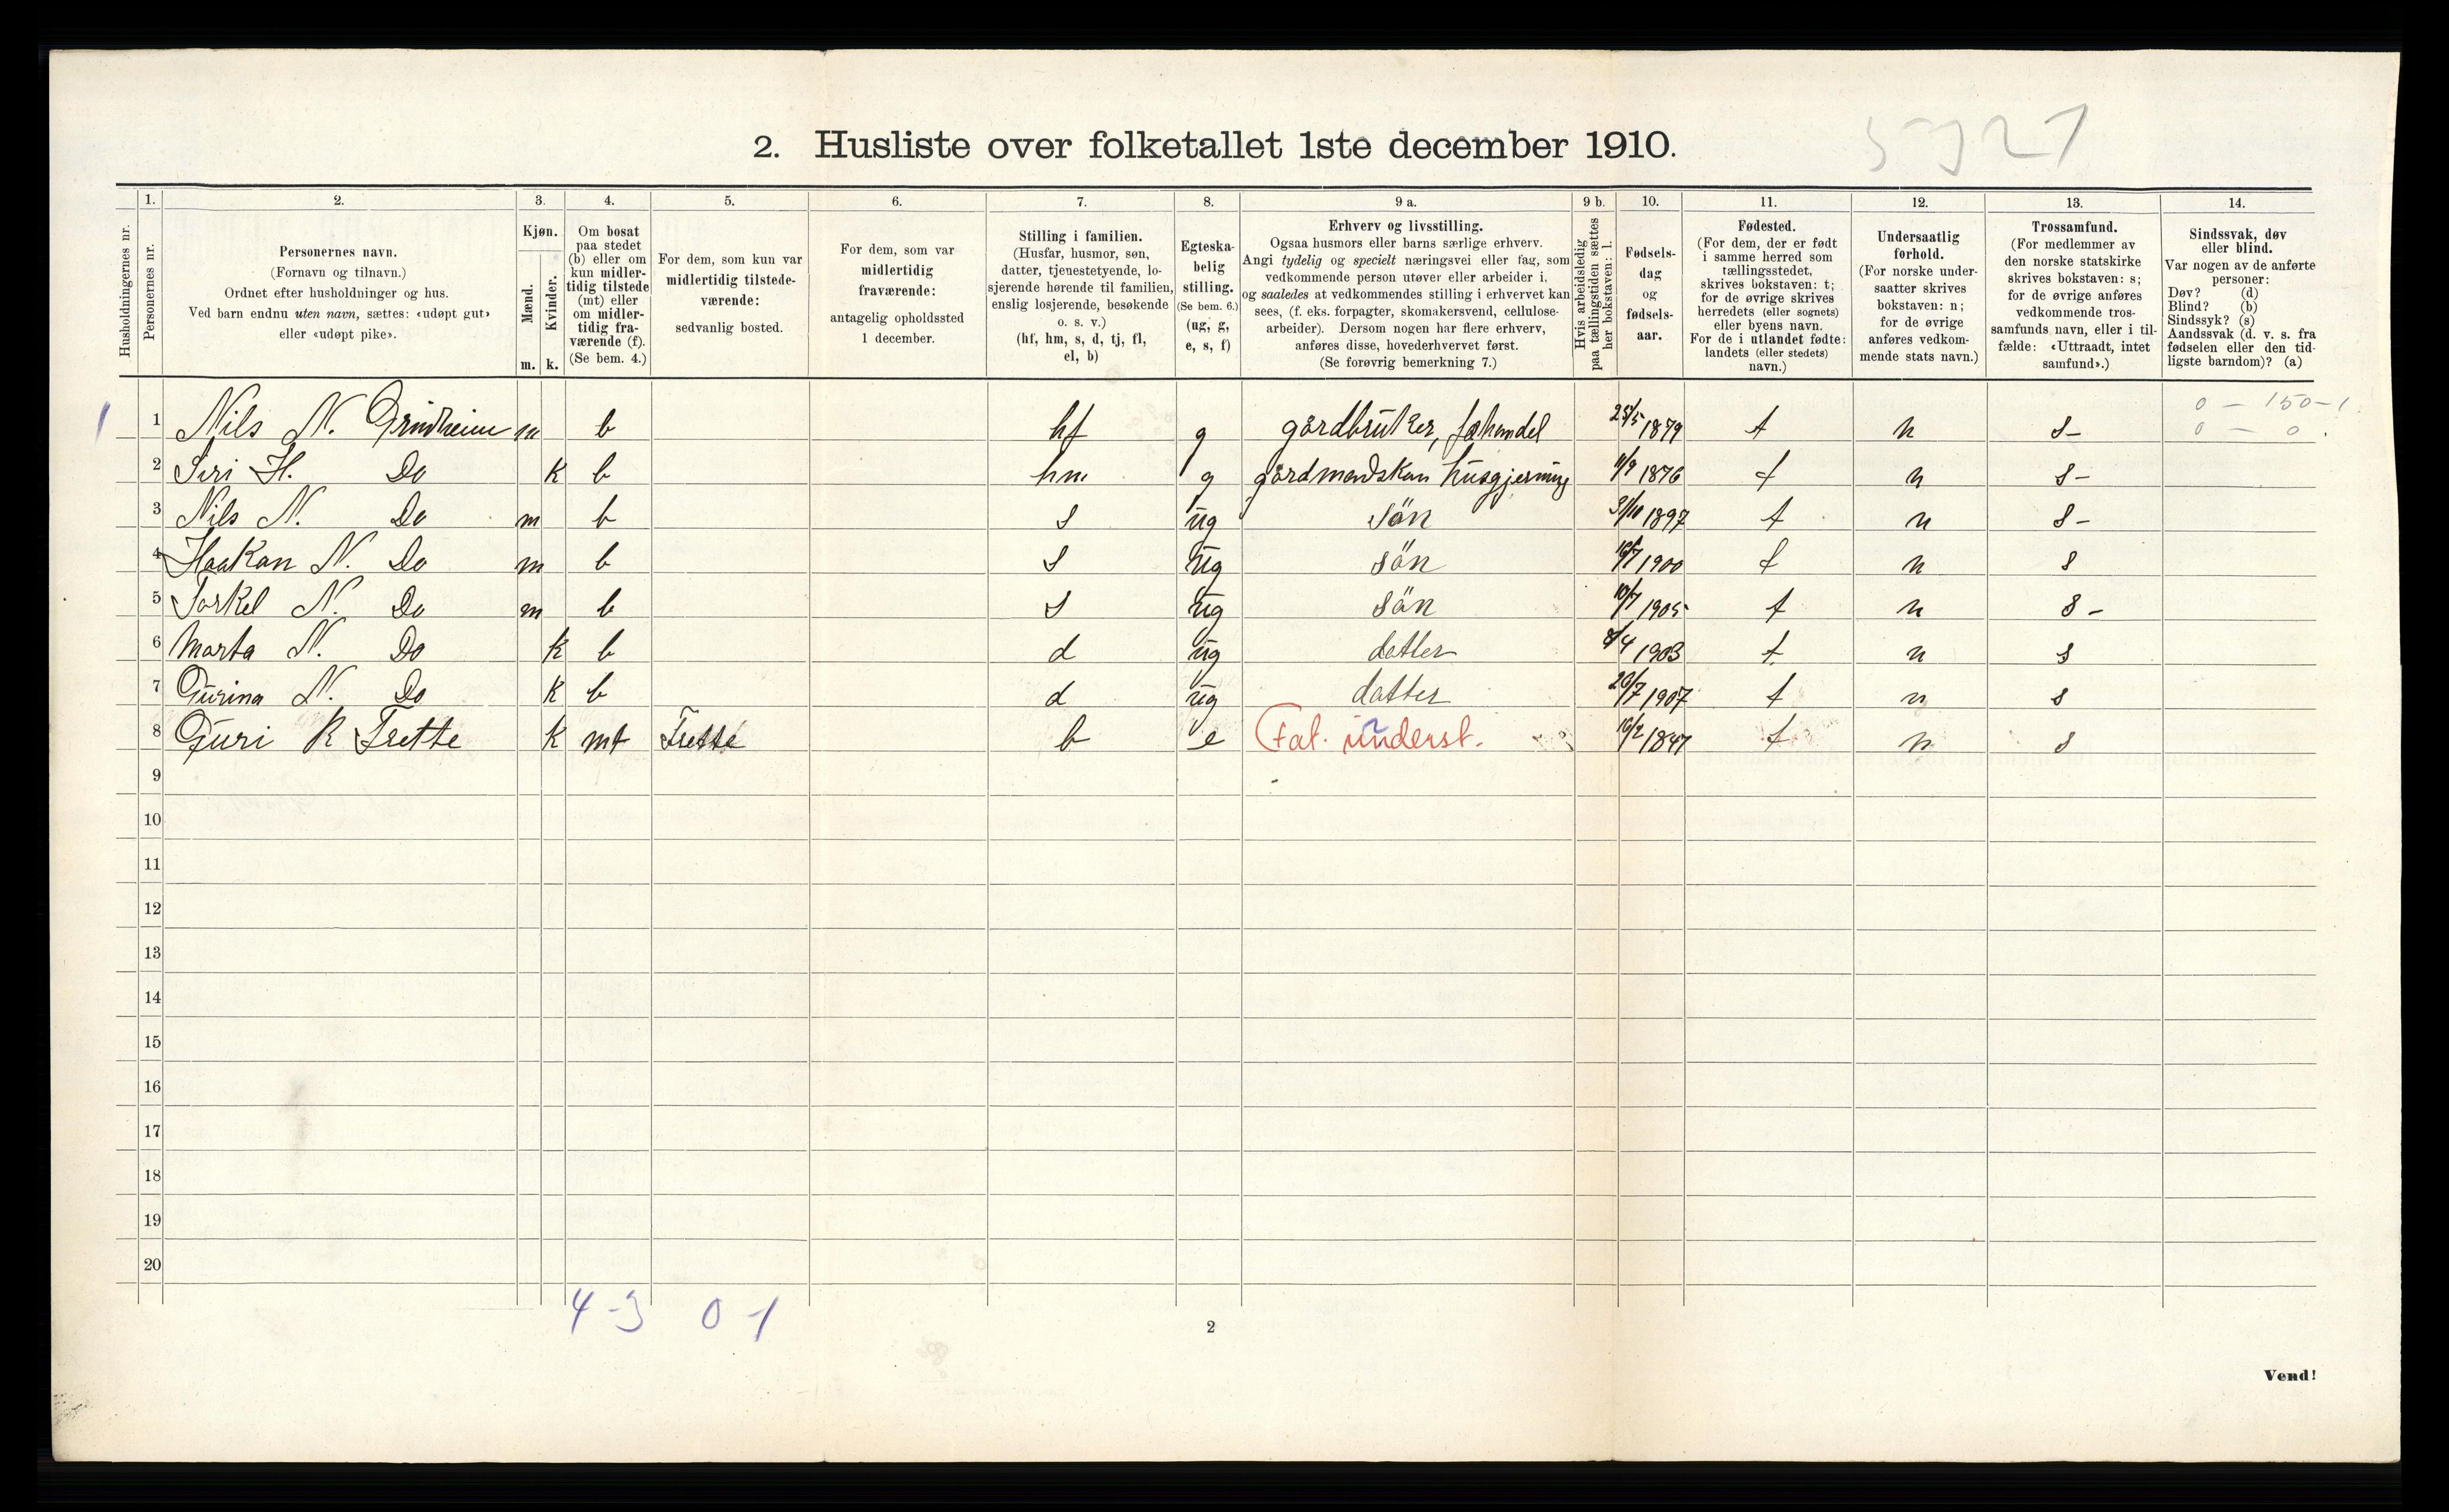 5921
2. Husliste over folketallet 1ste december 1910.
Husholdningernes nr.
1.
Personernes nr.
2.
Personernes navn.
(Fornavn og tilnavn.)
Ordnet efter husholdninger og hus.
Ved barn endnu uten navn, sættes: «udøpt gut»
eller «udøpt pike».
3.
Kjøn.
Mænd.
m.
Kvinder.
k.
4.
Om bosat
paa stedet
(b) eller om
kun midler-
tidig tilstede
(mt) eller
om midler-
tidig fra-
værende (f).
(Se bem. 4.)
5.
For dem, som kun var
midlertidig tilstede-
værende:
sedvanlig bosted.
6.
For dem, som var
midlertidig
fraværende:
antagelig opholdssted
1 december.
7.
Stilling i familien.
(Husfar, husmor, søn,
datter, tjenestetyende, lo-
sjerende hørende til familien,
enslig losjerende, besøkende
o. s. v.)
(hf, hm, s, d, tj, fl,
el, b)
8.
Egteska-
belig
stilling.
(Se bem. 6.)
(ug, g,
e, s, f)
9 a.
Erhverv og livsstilling.
Ogsaa husmors eller barns særlige erhverv.
Angi tydelig og specielt næringsvei eller fag, som
vedkommende person utøver eller arbeider i,
og saaledes at vedkommendes stilling i erhvervet kan
sees, (f. eks. forpagter, skomakersvend, cellulose-
arbeider). Dersom nogen har flere erhverv,
anføres disse, hovederhvervet først.
(Se forøvrig bemerkning 7.)
9 b.
Hvis arbeidsledig
paa tællingstiden sættes
her bokstaven: l.
10.
Fødsels-
dag
og
fødsels-
aar.
11.
Fødested.
(For dem, der er født
i samme herred som
tællingsstedet,
skrives bokstaven: t;
for de øvrige skrives
herredets (eller sognets)
eller byens navn.
For de i utlandet fødte:
landets (eller stedets)
navn.)
12.
Undersaatlig
forhold.
(For norske under-
saatter skrives
bokstaven: n;
for de øvrige
anføres vedkom-
mende stats navn.)
13.
Trossamfund.
(For medlemmer av
den norske statskirke
skrives bokstaven: s;
for de øvrige anføres
vedkommende tros-
samfunds navn, eller i til-
fælde: «Uttraadt, intet
samfund».)
14.
Sindssvak, døv
eller blind.
Var nogen av de anførte
personer:
Døv? (d)
Blind? (b)
Sindssyk? (s)
Aandssvak (d. v. s. fra
fødselen eller den tid-
ligste barndom)? (a)
0 - 150-1
1 1 Nils N. Grindheim m b hf g gårdbruker, fæhandel 25/5 1879 t n s- 0 - 0.
2 Siri H. Do k b hm g gårdmandskon husgjerning 11/9 1876 t n s-
3 Nils N. Do m b s ug sön 31/10 1897 t n s-
4 Haakon N. Do m b s ug sön 16/7 1900 t n s
5 Torkel N. Do m b s ug sön 10/7 1905 t n s-
6 Marta N. Do k b d ug datter 8/4 1903 t n s
7 Gurina N. Do k b d ug datter 20/7 1907 t n s
8 Guri K Trette k mt Trette b e Fat. underst. 16/2 1847 t n s
9
10
11
12
13
14
15
16
17
18
19
20
4-3 0-1
2
Vend!